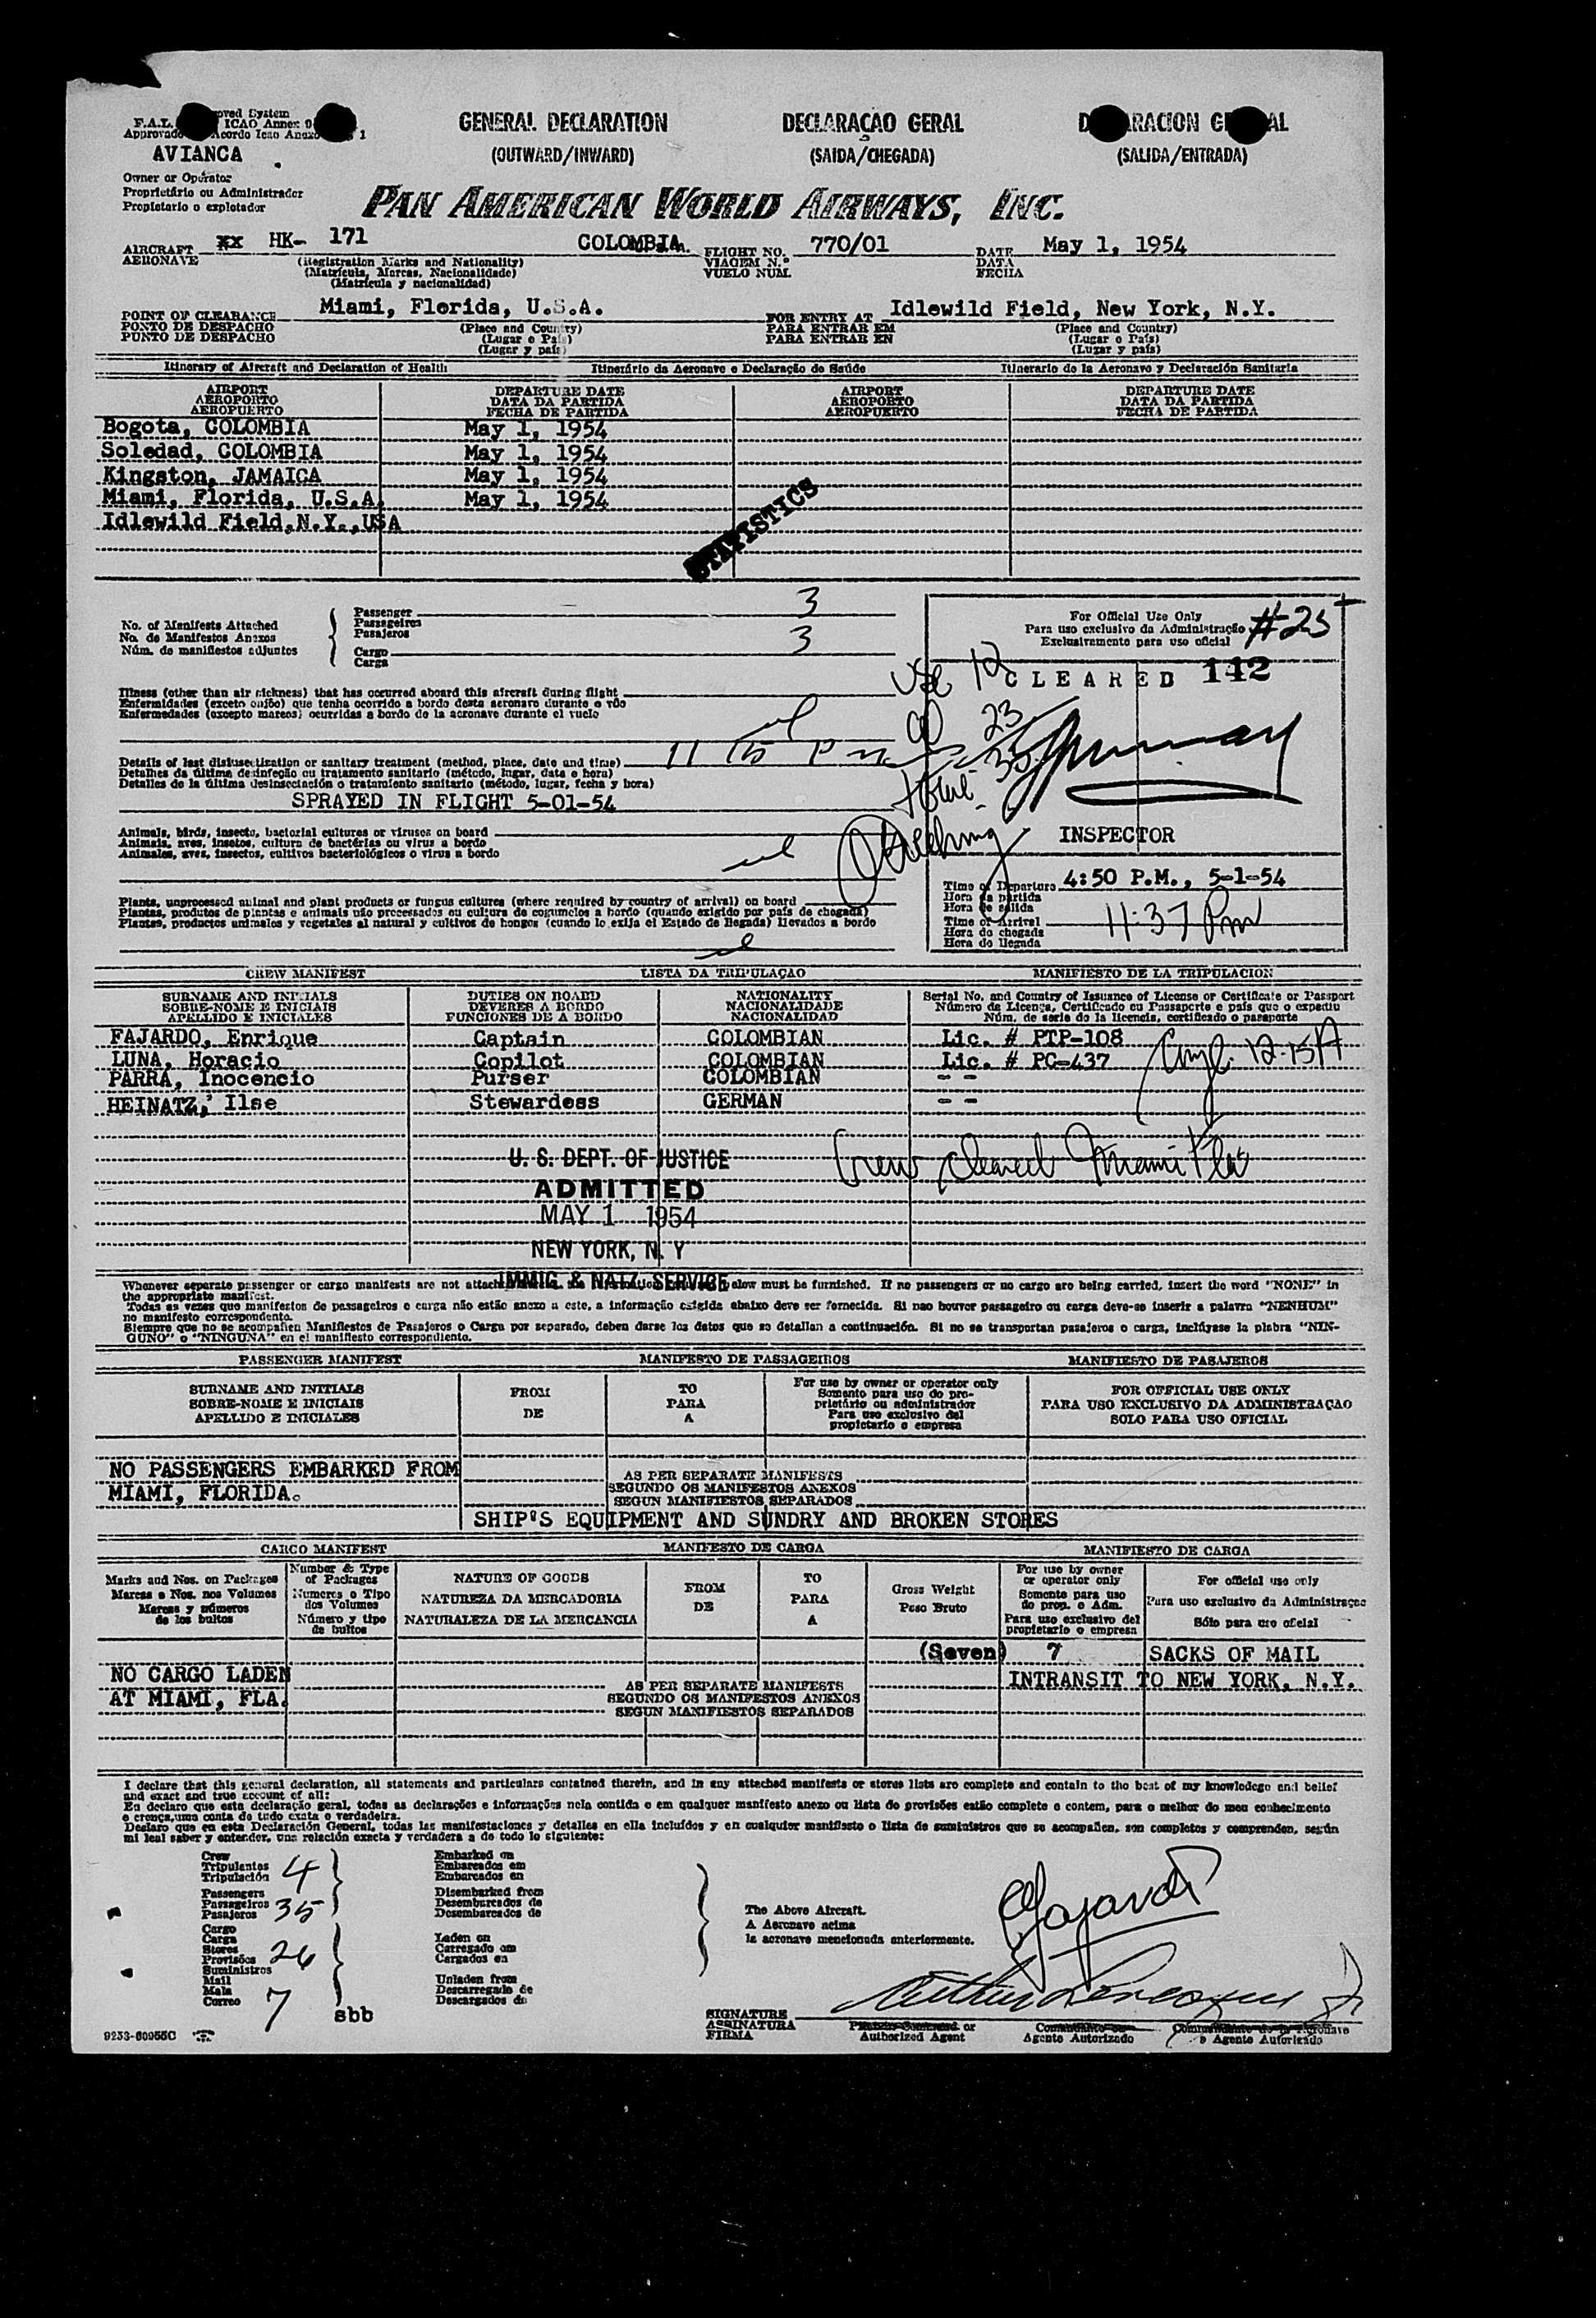 GENERAL DECLARATION
(OUTWARD/INWARD)
DECLARAÇAO GERAL
(SAIDA/CHEGADA)
(SALIDA/ENTRADA)
AVIANCA
Owner or Operator
Proprietário ou Administrador
Propietario o explotador
PAN AMERICAN WORLD AIRWAYS, INC.
AIRCRAFT xx HK- 171 COLOMBIA FLIGHT NO. 770/01 DATE May 1, 1954
AERONAVE (Registration Marks and Nationality) VIAGEM N.º DATA
(Matrícula, Marcas, Nacionalidade) VUELO NUM. FECHA
(Matrícula y nacionalidad)
POINT OF CLEARANCE Miami, Florida, U.S.A. FOR ENTRY AT Idlewild Field, New York, N.Y.
PONTO DE DESPACHO (Place and Country) PARA ENTRAR EM (Place and Country)
PUNTO DE DESPACHO (Lugar e País) PARA ENTRAR EN (Lugar e País)
(Lugar y país) (Lugar y país)
Itinerary of Aircraft and Declaration of Health Itinerário da Aeronave e Declaração de Saúde Itinerario de la Aeronave y Declaración Sanitaria
AIRPORT DEPARTURE DATE AIRPORT DEPARTURE DATE
AEROPORTO DATA DA PARTIDA AEROPORTO DATA DA PARTIDA
AEROPUERTO FECHA DE PARTIDA AEROPUERTO FECHA DE PARTIDA
Bogota, COLOMBIA May 1, 1954
Soledad, COLOMBIA May 1, 1954
Kingston, JAMAICA May 1, 1954
Miami, Florida, U.S.A. May 1, 1954
Idlewild Field,N.Y.,USA
STATISTICS
No. of Manifests Attached
No. de Manifestos Anexos
Núm. de manifiestos adjuntos
Passenger 3
Passageiros
Pasajeros
Cargo 3
Carga
For Official Use Only
Para uso exclusivo da Administração #25
Exclusivamente para uso oficial
CLEARED 142
12
23
35
INSPECTOR
Time of Departure 4:50 P.M., 5-1-54
Hora da partida
Hora de salida
Time of Arrival 11:37 Pm
Hora da chegada
Hora de llegada
Illness (other than air sickness) that has occurred aboard this aircraft during flight
Enfermidades (exceto enjôo) que tenha ocorrido a bordo desta aeronave durante o vôo
Enfermedades (excepto mareos) ocurridas a bordo de la aeronave durante el vuelo
Details of last disinsectization or sanitary treatment (method, place, date and time)
Detalhes da última desinfeção ou tratamento sanitario (método, lugar, data e hora)
Detalles de la última desinsectación o tratamiento sanitario (método, lugar, fecha y hora)
SPRAYED IN FLIGHT 5-01-54
Animals, birds, insects, bacterial cultures or viruses on board
Animais, aves, insetos, cultura de bactérias ou virus a bordo
Animales, aves, insectos, cultivos bacteriológicos o virus a bordo
Plants, unprocessed animal and plant products or fungus cultures (where required by country of arrival) on board
Plantas, produtos de plantas e animais não processados ou cultura de cogumelos a bordo (quando exigido por país de chegada)
Plantas, productos animales y vegetales al natural y cultivos de hongos (cuando lo exija el Estado de llegada) llevados a bordo
CREW MANIFEST LISTA DA TRIPULAÇAO MANIFIESTO DE LA TRIPULACION
SURNAME AND INITIALS DUTIES ON BOARD NATIONALITY Serial No. and Country of Issuance of License or Certificate or Passport
SOBRE-NOME E INICIALES DEVERES A BORDO NACIONALIDADE Número da Licença, Certificado ou Passaporte e país que o expediu
APELLIDO E INICIALES FUNCIONES DE A BORDO NACIONALIDAD Núm. de serie de la licencia, certificado o pasaporte
FAJARDO, Enrique Captain COLOMBIAN Lic. # PTP-108
LUNA, Horacio Copilot COLOMBIAN Lic. # PC-437
PARRA, Inocencio Purser COLOMBIAN - -
HEINATZ, Ilse Stewardess GERMAN - -
Crew cleared Miami Fla
U. S. DEPT. OF JUSTICE
ADMITTED
MAY 1 1954
NEW YORK, N. Y
IMMIG. & NATZ. SERVICE
Whenever separate passenger or cargo manifests are not attached below must be furnished. If no passengers or no cargo are being carried, insert the word "NONE" in
the appropriate manifest.
Todas as vezes que manifestos de passageiros e carga não estão anexo a este, a informação exigida abaixo deve ser fornecida. Si nao houver passageiro ou carga deve-se inserir a palavra "NENHUM"
no manifesto correspondento.
Siempre que no se acompañen Manifiestos de Pasajeros o Carga por separado, deben darse los datos que se detallan a continuación. Si no se transportan pasajeros o carga, inclúyase la plabra "NIN-
GUNO" o "NINGUNA" en el manifiesto correspondiente.
PASSENGER MANIFEST MANIFESTO DE PASSAGEIROS MANIFIESTO DE PASAJEROS
SURNAME AND INITIALS FROM TO For use by owner or operator only FOR OFFICIAL USE ONLY
SOBRE-NOME E INICIAIS DE PARA Somente para uso do pro- PARA USO EXCLUSIVO DA ADMINISTRAÇAO
APELLIDO E INICIALES A prietário ou administrador SOLO PARA USO OFICIAL
Para uso exclusivo del
propietario o empresa
NO PASSENGERS EMBARKED FROM AS PER SEPARATE MANIFESTS
MIAMI, FLORIDA. SEGUNDO OS MANIFESTOS ANEXOS
SEGUN MANIFIESTOS SEPARADOS
SHIP'S EQUIPMENT AND SUNDRY AND BROKEN STORES
CARGO MANIFEST MANIFESTO DE CARGA MANIFIESTO DE CARGA
Marks and Nos. on Packages
Marcas e Nos. nos Volumes
Marcas y números
de los bultos
Number & Type
of Packages
Numeros e Tipo
dos Volumes
Número y tipo
de bultos
NATURE OF GOODS
NATUREZA DA MERCADORIA
NATURALEZA DE LA MERCANCIA
FROM
DE
TO
PARA
A
Gross Weight
Peso Bruto
For use by owner
or operator only
Somente para uso
do prop. e Adm.
Para uso exclusivo del
propietario o empresa
For official use only
Para uso exclusivo da Administraçao
Sólo para uso oficial
(Seven) 7 SACKS OF MAIL
INTRANSIT TO NEW YORK, N.Y.
NO CARGO LADEN
AT MIAMI, FLA.
AS PER SEPARATE MANIFESTS
SEGUNDO OS MANIFESTOS ANEXOS
SEGUN MANIFIESTOS SEPARADOS
I declare that this general declaration, all statements and particulars contained therein, and in any attached manifests or stores lists are complete and contain to the best of my knowledege and belief
and exact and true account of all:
Eu declaro que esta declaração geral, todas as declarações e informações nela contida e em qualquer manifesto anexo ou lista de provisões estão complete e contem, para o melhor do meu conhecimento
e crença,uma conta de tudo exata e verdadeira.
Declaro que en esta Declaración General, todas las manifestaciones y detalles en ella incluídos y en cualquier manifiesto o lista de suministros que se acompañen, son completos y comprenden, según
mi leal saber y entender, una relación exacta y verdadera a de todo lo siguiente:
Crew
Tripulantes 4
Tripulación
Passengers
Passageiros 35
Pasajeros
Cargo
Carga
Stores
Provisões 26
Suministros
Mail
Mala
Correo 7
sbb
Embarked on
Embarcados em
Embarcados en
Disembarked from
Desembarcados de
Desembarcados de
Laden on
Carregado em
Cargados en
Unladen from
Descarregado de
Descargados de
The Above Aircraft.
A Aeronave acima
la aeronave mencionada anteriormente.
SIGNATURE
ASSINATURA
FIRMA
Authorized Agent
Agente Autorizado
o Agente Autorizado
9253-60955C